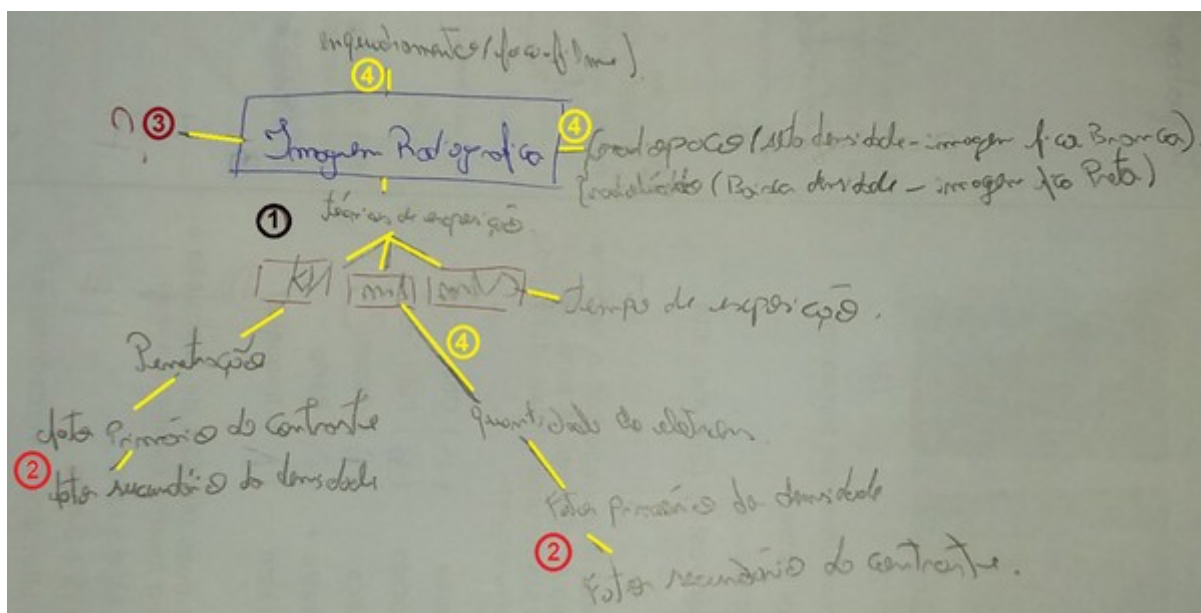 enquadramento (foco-filme).
4
? 3
Imagem Radiográfica
4
radiopaco (alta densidade - imagem fica Branca)
radiolúcido (Baixa densidade - imagem fica Preta)
1
de exposição
KV
mA
tempo de exposição.
Penetração
4
fator Primário do contraste
quantidade de eletrons.
2
fator secundário da densidade
Fator primário da densidade
2
Fator secundário do contraste.